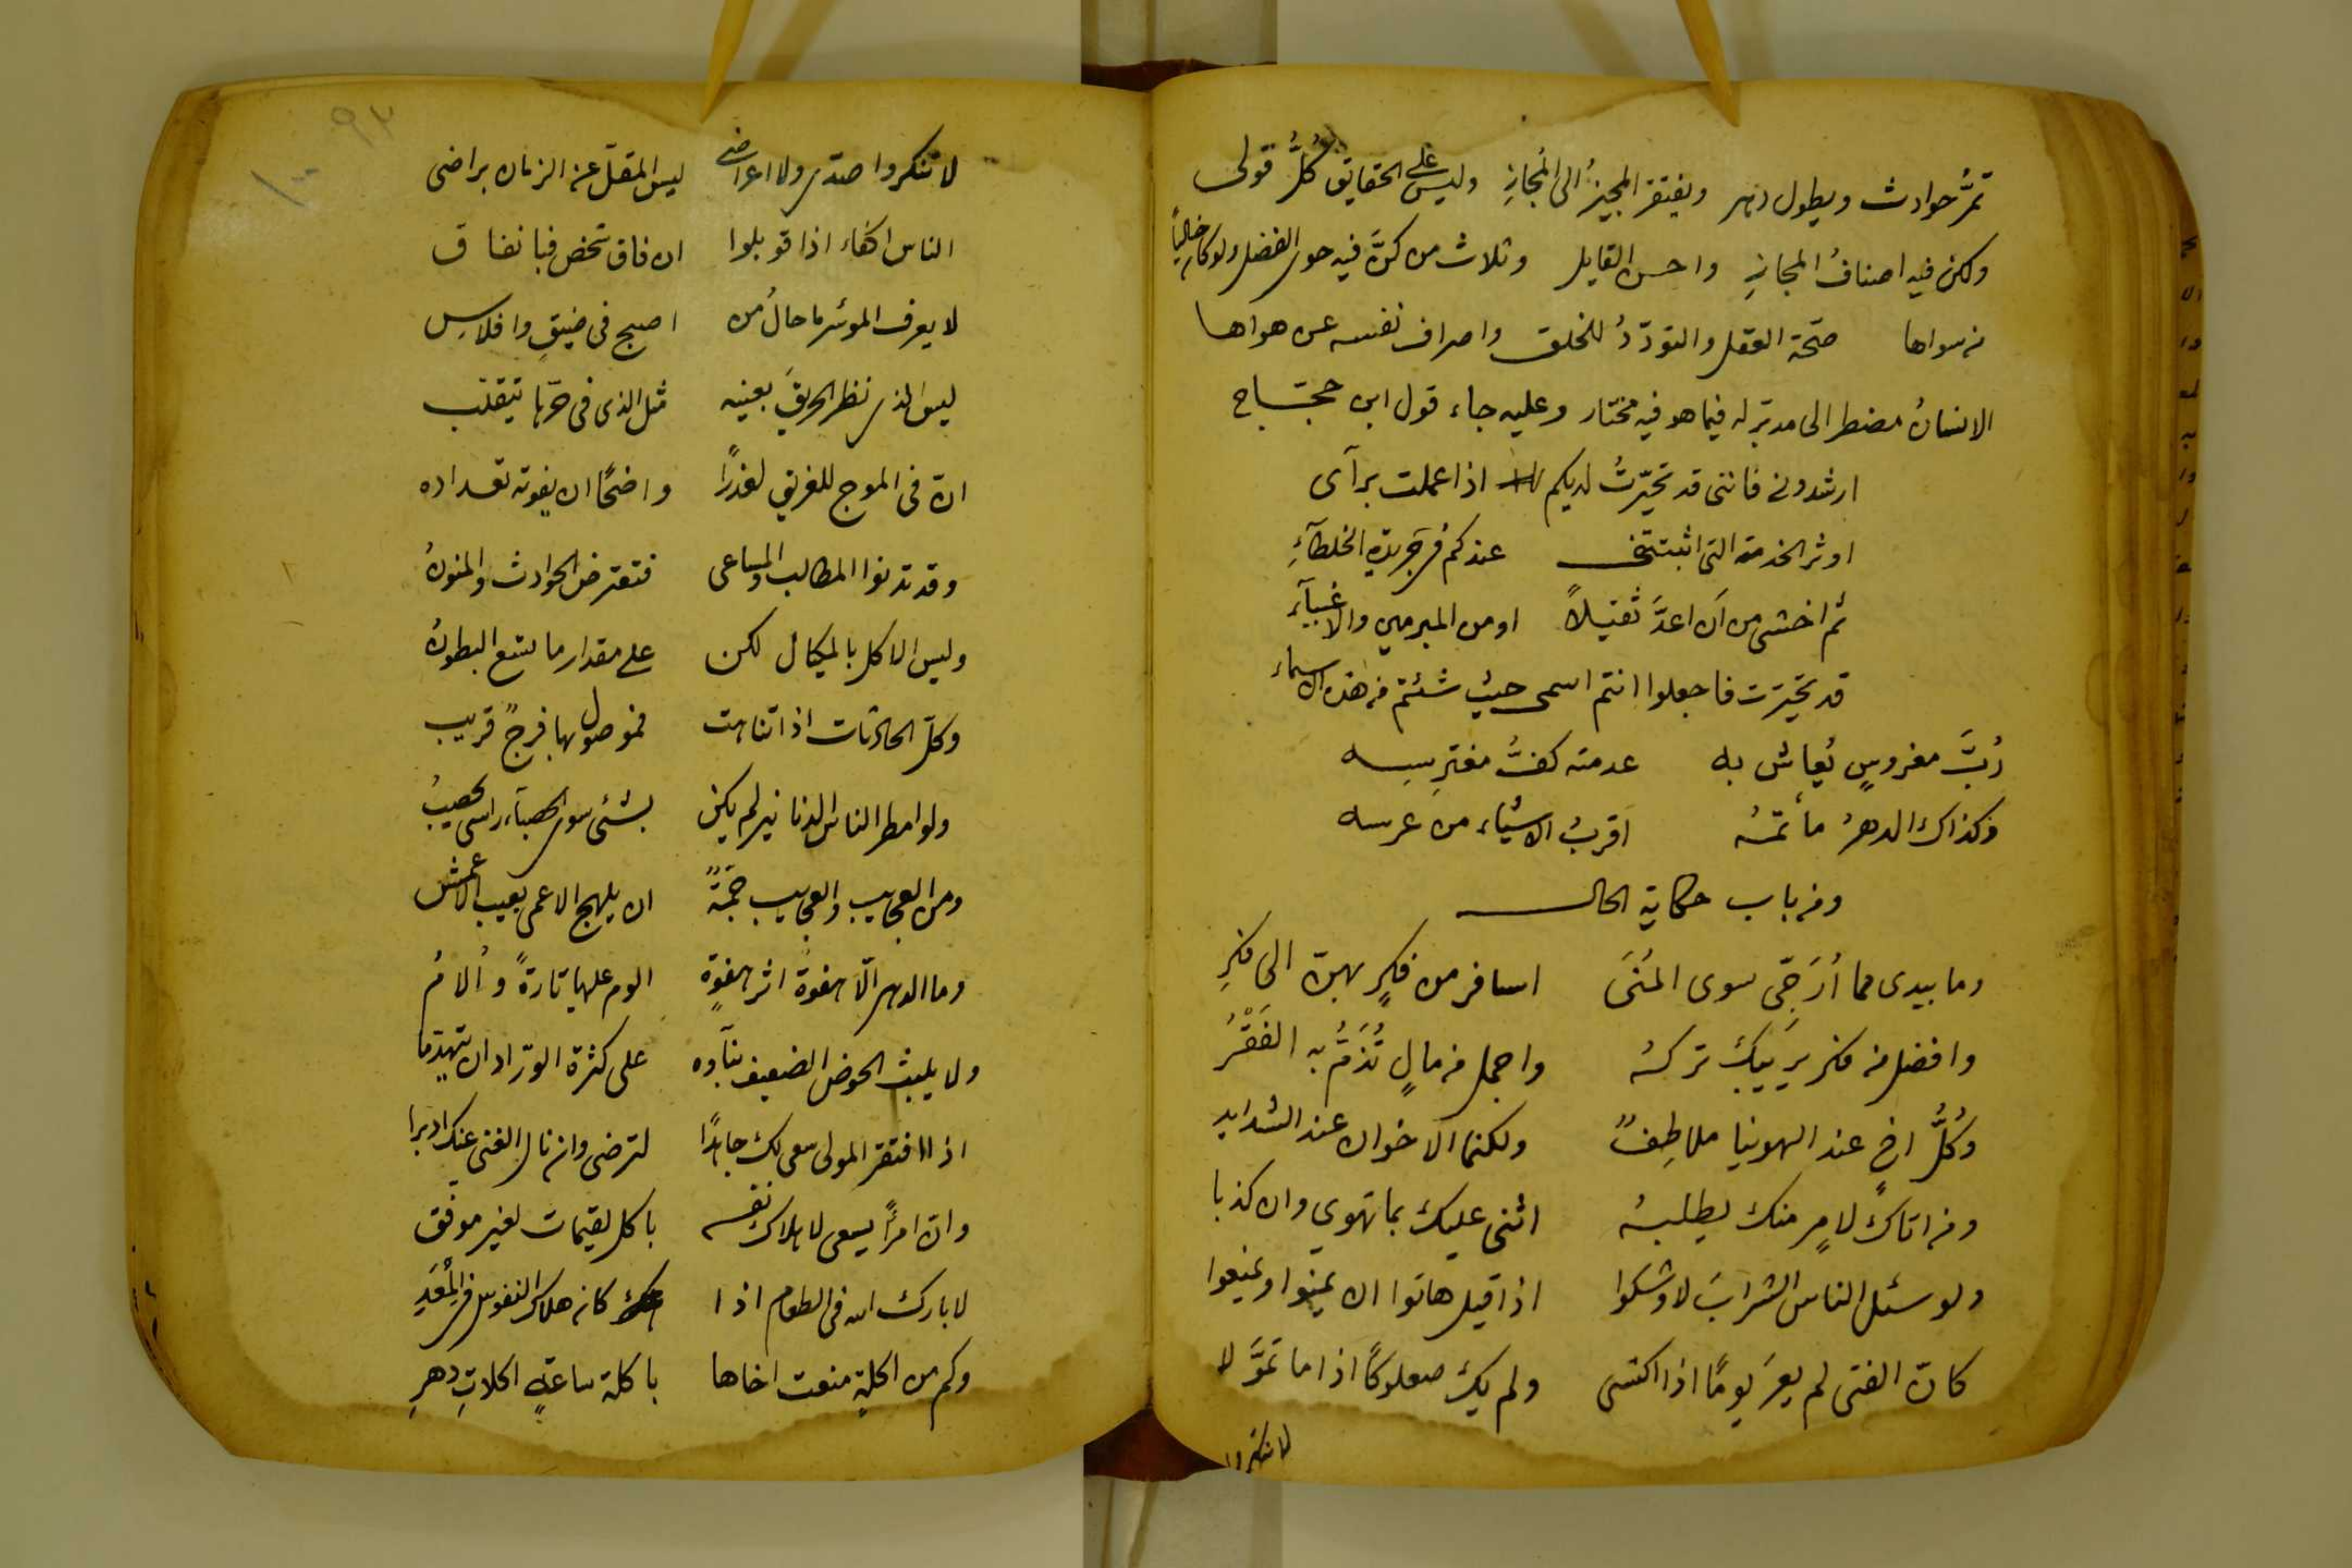 تمرُّ حوادث ويطول دهر ويفتقر المجيزُ الى المُجازِ وليس على الحقايق كُلُّ قولى
ولكن فيه اصنافُ المجازِ واحسن القايل وثلاث من كنَّ فيه حوى الفضل ولو كان خاليًا
من سواها صحّة العقل والتودّدُ للخلق واصراف نفسه عن هواها
الانسانُ مضطر الى مدبّر له فيما هو فيه مختار وعليه جاء قول ابن حجّاج
ارشدونى فاننى قد تحيّرتُ لديكم اذا عملت برآى
اوثر الخدمة التى اثبتتنى عندكم فى جريدة الخلطآءِ
ثم اخشى من اَن اعدَّ ثقيلاً او من المبرمين والاغبيآء
قد تحيّرت فاجعلوا انتم اسمى حيث شئتم من هذه الاسماء
رُبَّ مغروسٍ يُعاش به عدمته كفُّ مغترسه
وكذاك الدهرُ مأتمهُ اقربُ الاشياء من عرسه
ومن باب حكاية الحال
وما بيدى مما اُرَجّى سوى المُنَى اسافر من فكرٍ بهنّ الى فكرِ
وافضل من فكر يريبكَ تركهُ واجمل من مالٍ تُذَمُّ به الفَقْرُ
وكُلُّ اخٍ عند الهوينا ملاطِفٌ ولكنما الاخوان عند الشدايد
ومن اتاك لامرٍ منك يطلبهُ اثنى عليك بما تهوى وان كذبا
ولو سئل الناس الشرابَ لاوشكوا اذا قيل هاتوا ان يمنوا ويمنعوا
كانّ الفتى لم يعرَ يومًا اذا اكتسى ولم يك صعلوكًا اذا ما تموَّلا
لا تنكروا
٩٣
١٠٠
لا تنكروا صدّى ولا اعراضى ليس المقلّ عن الزمان براضى
الناس اكفاء اذا قوبلوا ان فاق شخص فبانفاق
لا يعرف الموسُر ما حالُ من اصبح فى ضيقٍ وافلاسِ
ليس الذى نظر الحريقَ بعينه مثل الذى فى حرّها يتقلّب
انّ فى الموج للغريق لعذرًا واضحًا ان يفوته تعداده
وقد تدنوا المطالب والمساعى فتعترض الحوادث والمنونُ
وليس الاكل بالمكيال لكن على مقدار ما تسع البطونُ
وكلّ الحادثات اذا تناهت فموصول بها فرجٌ قريب
ولو امطر الناس الدنانير لم يكن بشئى سوى الحصبآء راسى يحصبُ
ومن العجايب والعجايب جمّةٌ ان يلهج الاعمى بعيب الاعمش
وما الدهر الّا هفوة اثر هفوةٍ الوم عليها تارةً واُلامُ
ولا يلبث الحوض الضعيف بنآوه على كثرة الورّاد ان يتهدّما
اذا افتقر المولى سعى لك جاهدًا لترضى وان نال الغنى عنك ادبرا
وانّ امرًأ يسعى لاهلاك نفسه باكل لقيمات لغير موفّق
لا بارك الله فى الطعام اذا كان هلاك النفوس فى المُعَدِ
وكم من اكلةٍ منعت اخاها باكلة ساعةٍ اكلاتِ دهرِ